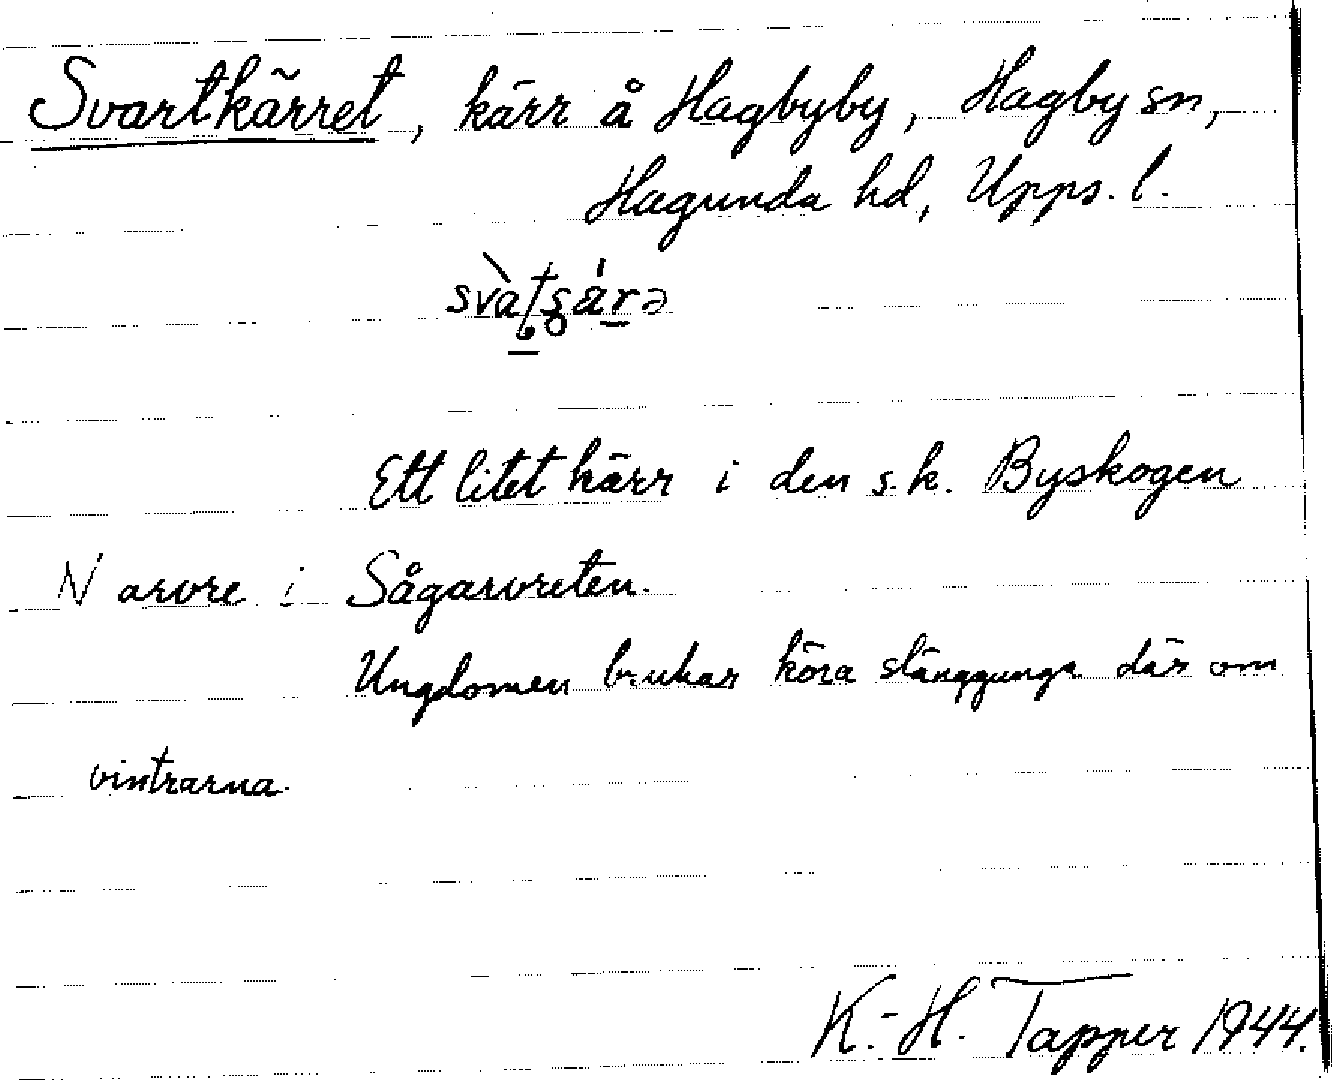 Svartkärret, kärr å Hagbyby, Hagby sn,
Hagunda hd, Upps. l.
Ett litet kärr i den s.k. Byskogen
N arvre i Sågarvreten.
Ungdomen brukar köra slänggunga där om
vintrarna.
K.-H. Tapper 1944.